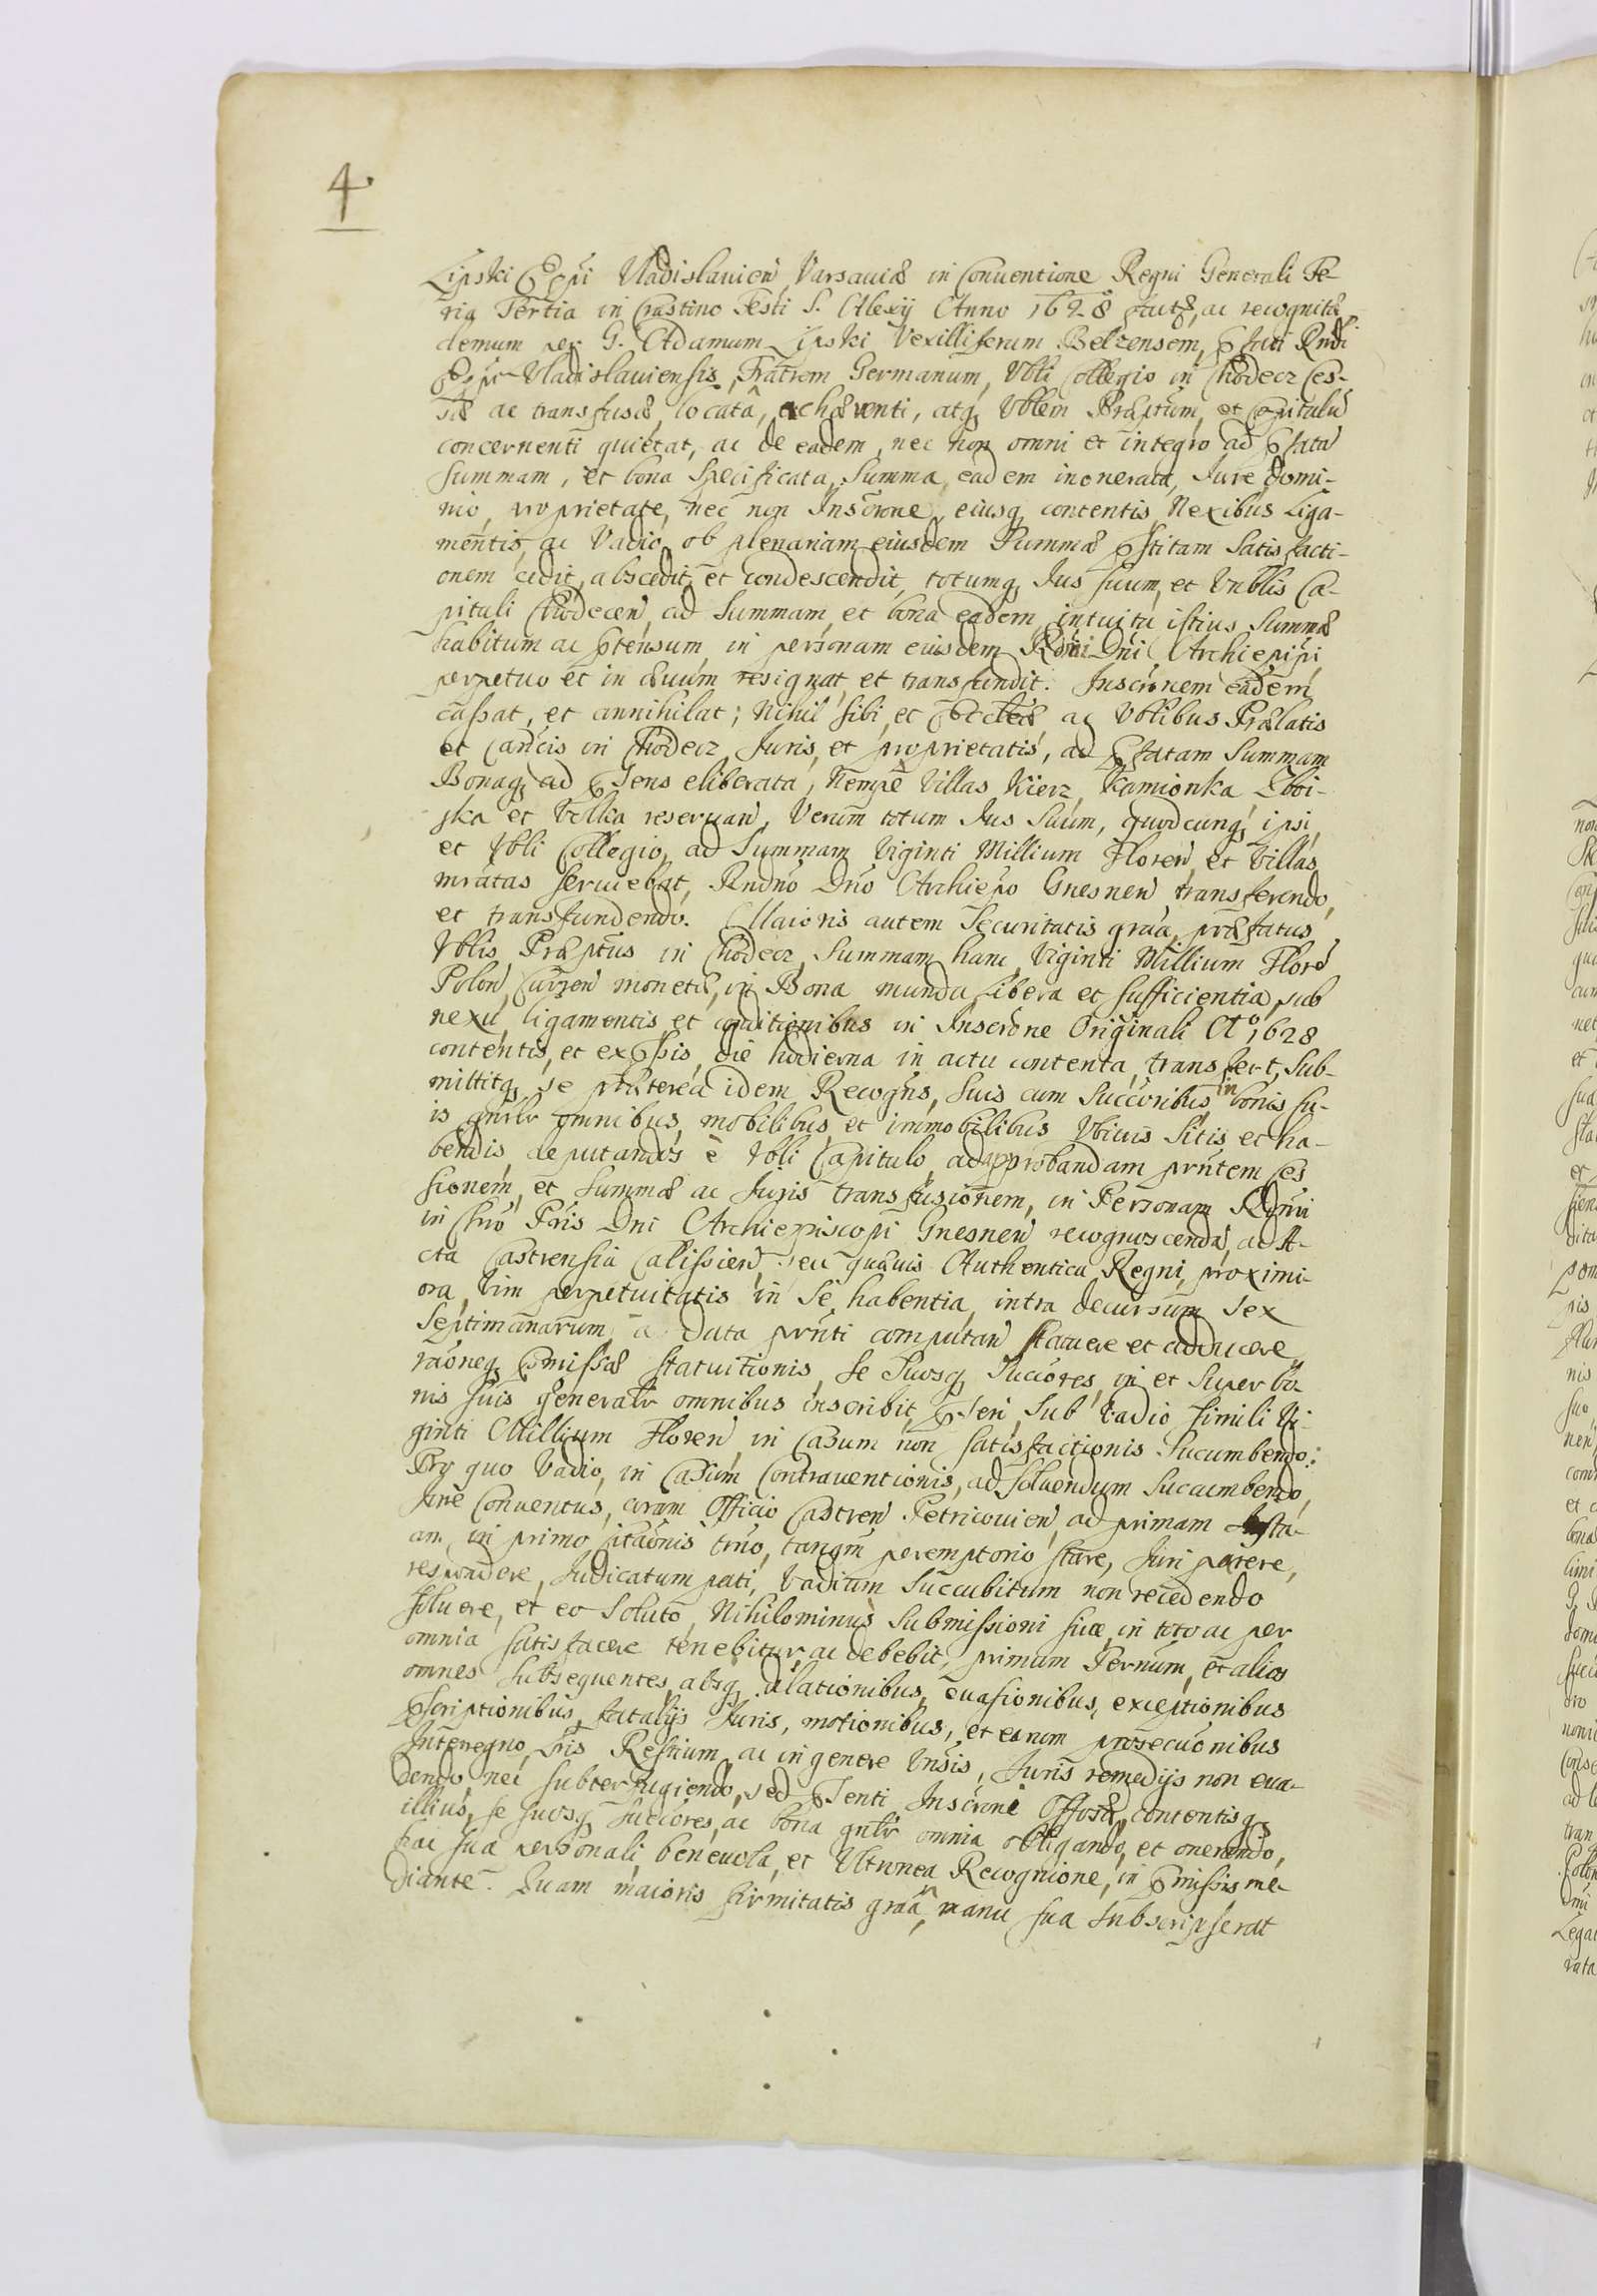 4.
Lipski Eppi Vladislavien Varsaviæ in Conventione Regni Generali Fe-
ria Tertia in Crastino Festi S. Alexij Anno 1628 factæ, ac recognitæ
demum per G. Adamum Lipski Vexilliferum Belzensem, pfati Rndi
Eppi Vladislaviensis Fratrem Germanum, Vbli Collegio in Chodecz ces-
sæ ac transfusæ, locatâ, atq Vblem Præptum, et Capitulũ
concernenti quietat, ac de eadem, nec non omni et integro ad pfatã
Summam, et bona specificata, Summa eadem inonerata, Jure, domi-
nio, proprietate, nec non Inscrone, eiusq contentis Nexibus Liga-
mentis, ac Vadio, ob plenariam eiusdem Summæ pstitam Satisfacti-
onem cedit, abscedit, et condescendit, totumq Jus suum, et Vnblis Ca-
pituli Chodecen ad Summam et bona eadem intuitu istius Summæ
habitum ac ptensum in personam eiusdem Rdni Dni Archieppi
perpetuo et in ævum resignat, et transfundit. Inscronem eadem
cassat, et annihilat; Nihil sibi, et Ecclæ ac Vblibus Prælatis
et Cancis in Chodecz, Juris, et proprietatis, ad pfatam Summam
Bonaq ad psens eliberata, nempe Villas Kierz, Kamionka Zboi-
ska et Volka reservan, Verum totum Jus Suum, quodcunq ipsi,
et Vbli Collegio, ad Summam Viginti Millium Floren et Villas
mratas serviebat, Rndno Dno Archiepo Gnesnen transferendo,
et transfundendo. Maioris autem Securitatis graa, præfatus
Vblis Præptus in Chodecz Summam hanc Viginti Millium Floren
Polon Curren monetæ, in Bona munda Libera et Sufficientia, sub
nexu, ligamentis et conditionibus in Inscrone Originali Ao 1628
contentis, et expssis, die hodierna in actu contenta, transfert, Sub-
mittitq se præterea idem Recogns, suis cum Succoribus in bonis su-
is gnrlr omnibus, mobilibus et immobilibus Vbivis Sitis et ha-
bendis deputandis è Vbli Capitulo ad approbandam prntem ces
sionem, et Summæ ac Juris transfusionem, in Personam Rdmi
in Chro Pris Dni Archiepiscopi Gnesnen recognoscendã, ad A-
cta Castrensia Calissien, seu quævis Authentica Regni, proximi-
ora, Vim perpetuitatis in Se habentia, intra decursum sex
Septimanarum, a data prnti computan statuere et adducere
raoneq pmissæ statuitionis, se Suosq Succores, in et Super bo-
nis suis generalr omnibus inscribit, psten, Sub Vadio simili Vi-
ginti Millium Floren, in Casum non satisfactionis Sucumbendo:
Pro quo Vadio, in Casum Contraventionis, ad Soluendum Sucumbendo,
Jure Conventus, coram Officio Castren Petricovien, ad primam Insta-
am, in primo citaonis trno, tanqm peremptorio stare, Juri parere,
respondere, Judicatum pati, Vadium Succubitum non recedendo
soluere, et eo Soluto, Nihilominus Submissioni suæ, in toto ac per
omnia satisfacere tenebitur, ac debebit, primum Ternum, et alios
omnes Subsequentes, absq dilationibus, evasionibus, exceptionibus
pscriptionibus, fatalijs Juris, motionibus, et earum prosecuonibus
Interregno, Lris Restium, ac in genere Vnsis, Juris remedijs non eva-
dendo, nec subterfugiendo, sed psenti Inscrone Offosæ, contentisq
illius, se suosq Succores, ac bona gnlr omnia obligando, et onerando,
hac sua personali, benevola, et Vltronea Recognitione, in pmissis me-
diante. Quam maioris firmitatis graa manu sua subscripserat